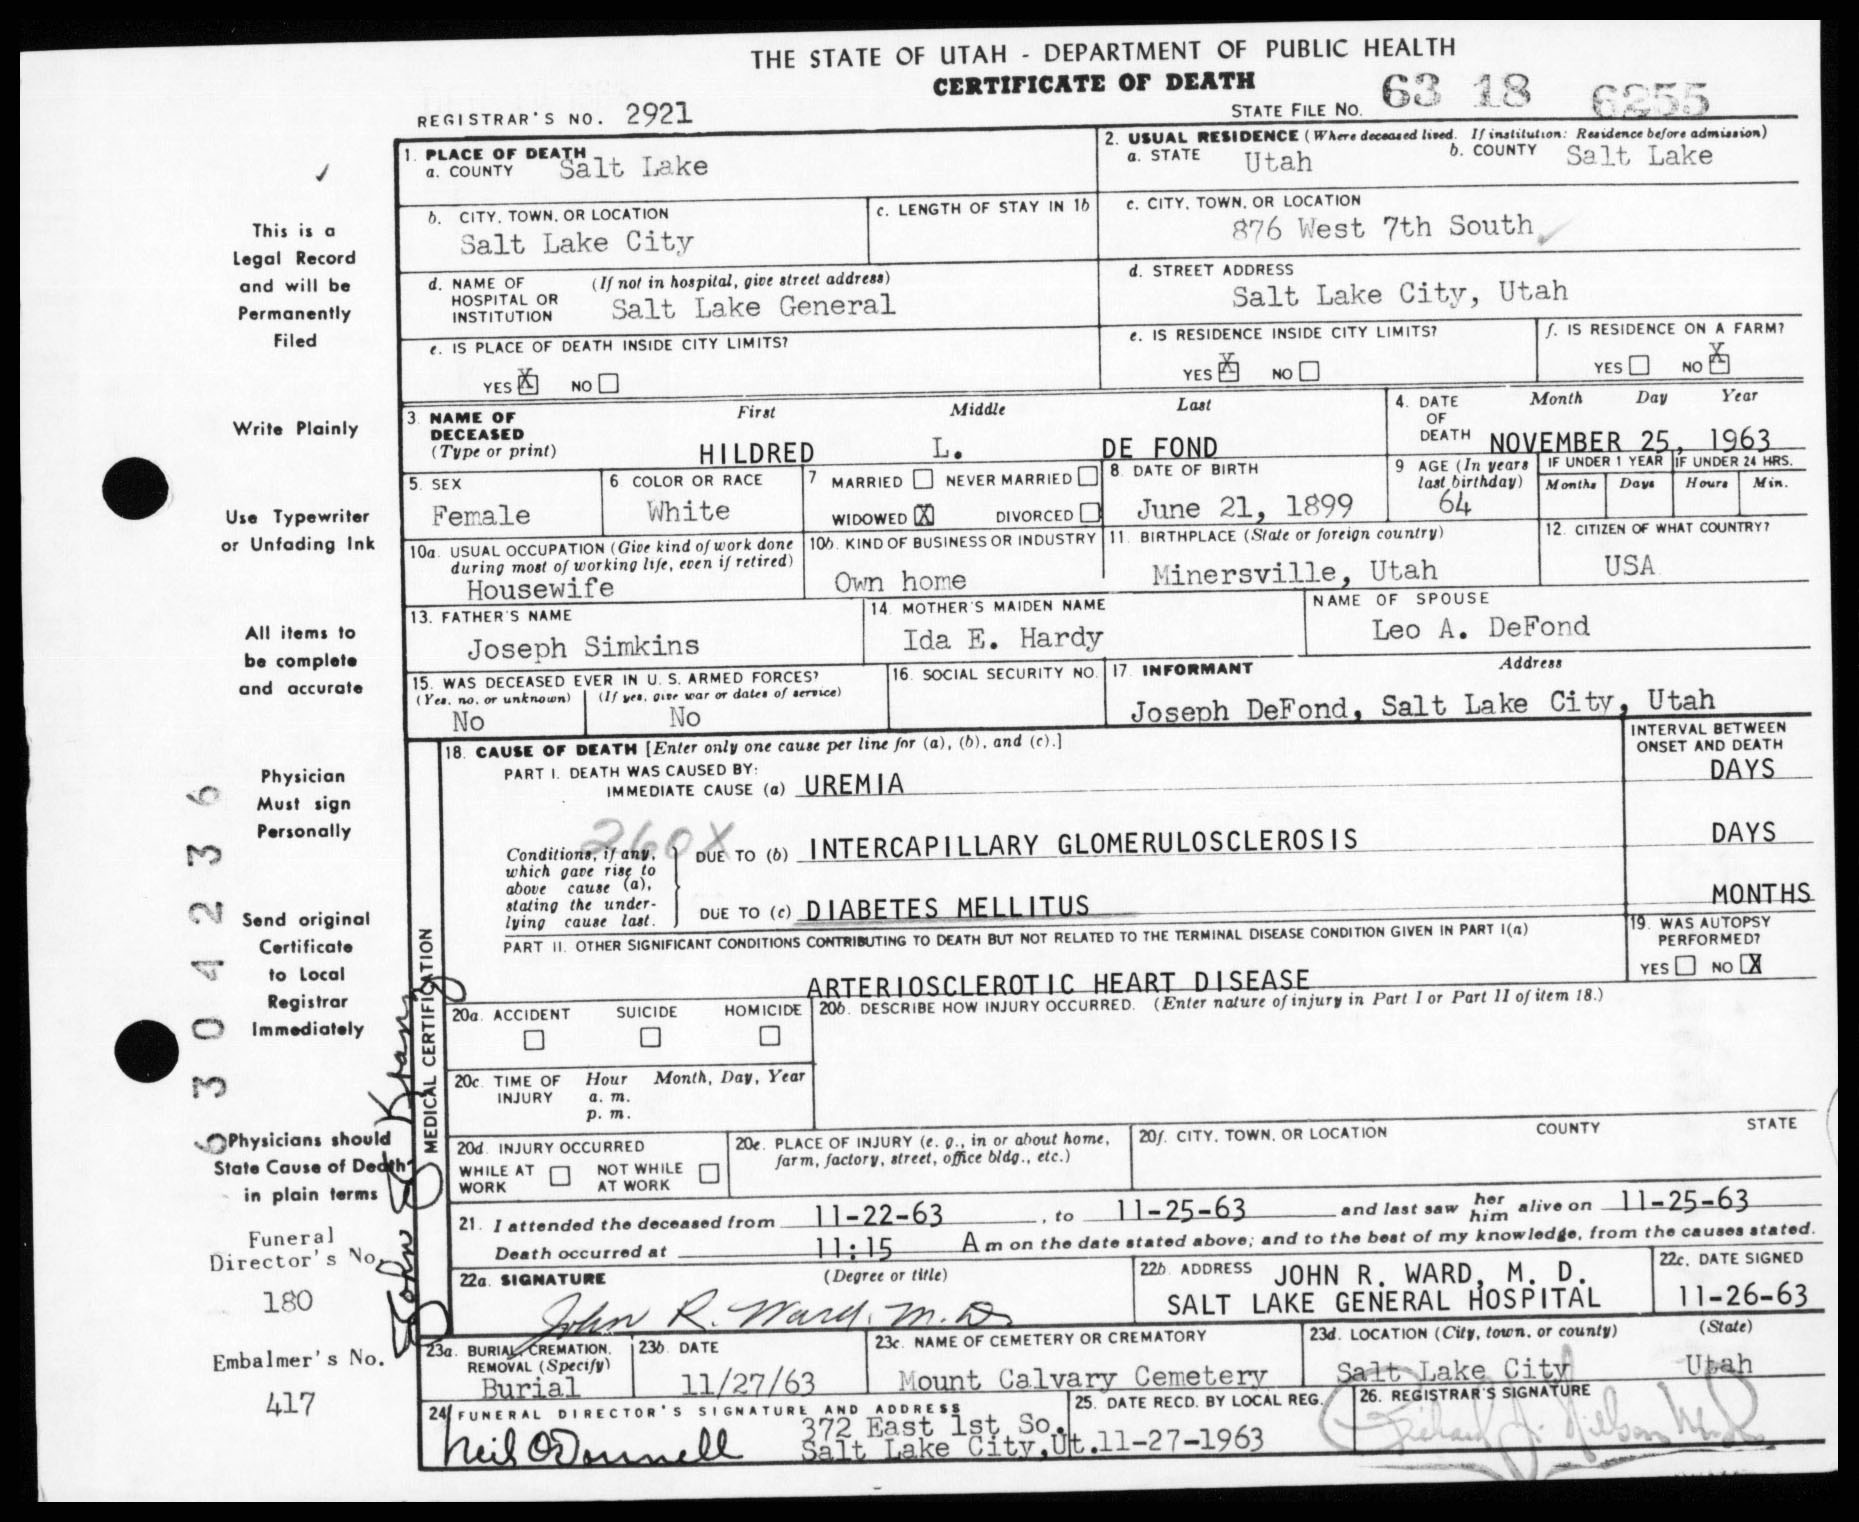 THE STATE OF UTAH - DEPARTMENT OF PUBLIC HEALTH
CERTIFICATE OF DEATH
REGISTRAR'S NO. 2921
STATE FILE NO. 63 18 6255
1. PLACE OF DEATH
a. COUNTY Salt Lake
2. USUAL RESIDENCE (Where deceased lived. If institution: Residence before admission)
a. STATE Utah b. COUNTY Salt Lake
b. CITY, TOWN, OR LOCATION
Salt Lake City
c. LENGTH OF STAY IN 1b
c. CITY, TOWN, OR LOCATION
876 West 7th South
d. NAME OF HOSPITAL OR INSTITUTION (If not in hospital, give street address)
Salt Lake General
d. STREET ADDRESS
Salt Lake City, Utah
e. IS PLACE OF DEATH INSIDE CITY LIMITS?
YES X NO
e. IS RESIDENCE INSIDE CITY LIMITS?
YES X NO
f. IS RESIDENCE ON A FARM?
YES NO X
3. NAME OF DECEASED (Type or print)
First Middle Last
HILDRED L. DE FOND
4. DATE OF DEATH Month Day Year
NOVEMBER 25, 1963
5. SEX
Female
6 COLOR OR RACE
White
7 MARRIED NEVER MARRIED
WIDOWED X DIVORCED
8. DATE OF BIRTH
June 21, 1899
9 AGE (In years last birthday)
64
IF UNDER 1 YEAR
Months Days
IF UNDER 24 HRS.
Hours Min.
10a. USUAL OCCUPATION (Give kind of work done during most of working life, even if retired)
Housewife
10b. KIND OF BUSINESS OR INDUSTRY
Own home
11. BIRTHPLACE (State or foreign country)
Minersville, Utah
12. CITIZEN OF WHAT COUNTRY?
USA
13. FATHER'S NAME
Joseph Simkins
14. MOTHER'S MAIDEN NAME
Ida E. Hardy
NAME OF SPOUSE
Leo A. DeFond
15. WAS DECEASED EVER IN U. S. ARMED FORCES?
(Yes, no, or unknown) (If yes, give war or dates of service)
No No
16. SOCIAL SECURITY NO.
17. INFORMANT Address
Joseph DeFond, Salt Lake City, Utah
18. CAUSE OF DEATH [Enter only one cause per line for (a), (b), and (c).]
INTERVAL BETWEEN ONSET AND DEATH
PART I. DEATH WAS CAUSED BY:
IMMEDIATE CAUSE (a) UREMIA DAYS
260X
Conditions, if any, which gave rise to above cause (a), stating the underlying cause last.
DUE TO (b) INTERCAPILLARY GLOMERULOSCLEROSIS DAYS
DUE TO (c) DIABETES MELLITUS MONTHS
PART II. OTHER SIGNIFICANT CONDITIONS CONTRIBUTING TO DEATH BUT NOT RELATED TO THE TERMINAL DISEASE CONDITION GIVEN IN PART I(a)
ARTERIOSCLEROTIC HEART DISEASE
19. WAS AUTOPSY PERFORMED?
YES NO X
MEDICAL CERTIFICATION
20a. ACCIDENT SUICIDE HOMICIDE
20b. DESCRIBE HOW INJURY OCCURRED. (Enter nature of injury in Part I or Part II of item 18.)
20c. TIME OF INJURY Hour Month, Day, Year
a. m.
p. m.
20d. INJURY OCCURRED
WHILE AT WORK NOT WHILE AT WORK
20e. PLACE OF INJURY (e. g., in or about home, farm, factory, street, office bldg., etc.)
20f. CITY, TOWN, OR LOCATION COUNTY STATE
21. I attended the deceased from 11-22-63, to 11-25-63 and last saw her him alive on 11-25-63
Death occurred at 11:15 A m on the date stated above; and to the best of my knowledge, from the causes stated.
22a. SIGNATURE (Degree or title)
John R. Ward, M.D.
22b. ADDRESS JOHN R. WARD, M. D.
SALT LAKE GENERAL HOSPITAL
22c. DATE SIGNED
11-26-63
23a. BURIAL, CREMATION, REMOVAL (Specify)
Burial
23b. DATE
11/27/63
23c. NAME OF CEMETERY OR CREMATORY
Mount Calvary Cemetery
23d. LOCATION (City, town, or county) (State)
Salt Lake City Utah
24 FUNERAL DIRECTOR'S SIGNATURE AND ADDRESS
Neil O'Donnell
372 East 1st So.
Salt Lake City, Ut.
25. DATE RECD. BY LOCAL REG.
11-27-1963
26. REGISTRAR'S SIGNATURE
This is a
Legal Record
and will be
Permanently
Filed
Write Plainly
Use Typewriter
or Unfading Ink
All items to
be complete
and accurate
Physician
Must sign
Personally
Send original
Certificate
to Local
Registrar
Immediately
Physicians should
State Cause of Death
in plain terms
Funeral
Director's No.
180
Embalmer's No.
417
6304236